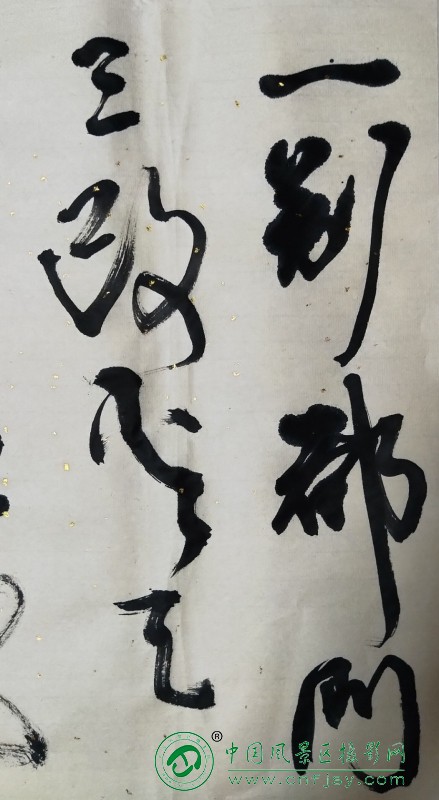 一别都门
三改火天
®
中国风景区摄影网
www.cnfjay.com